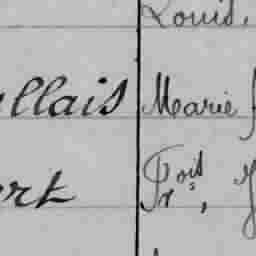 Louis,
llais Marie
rt Frois,